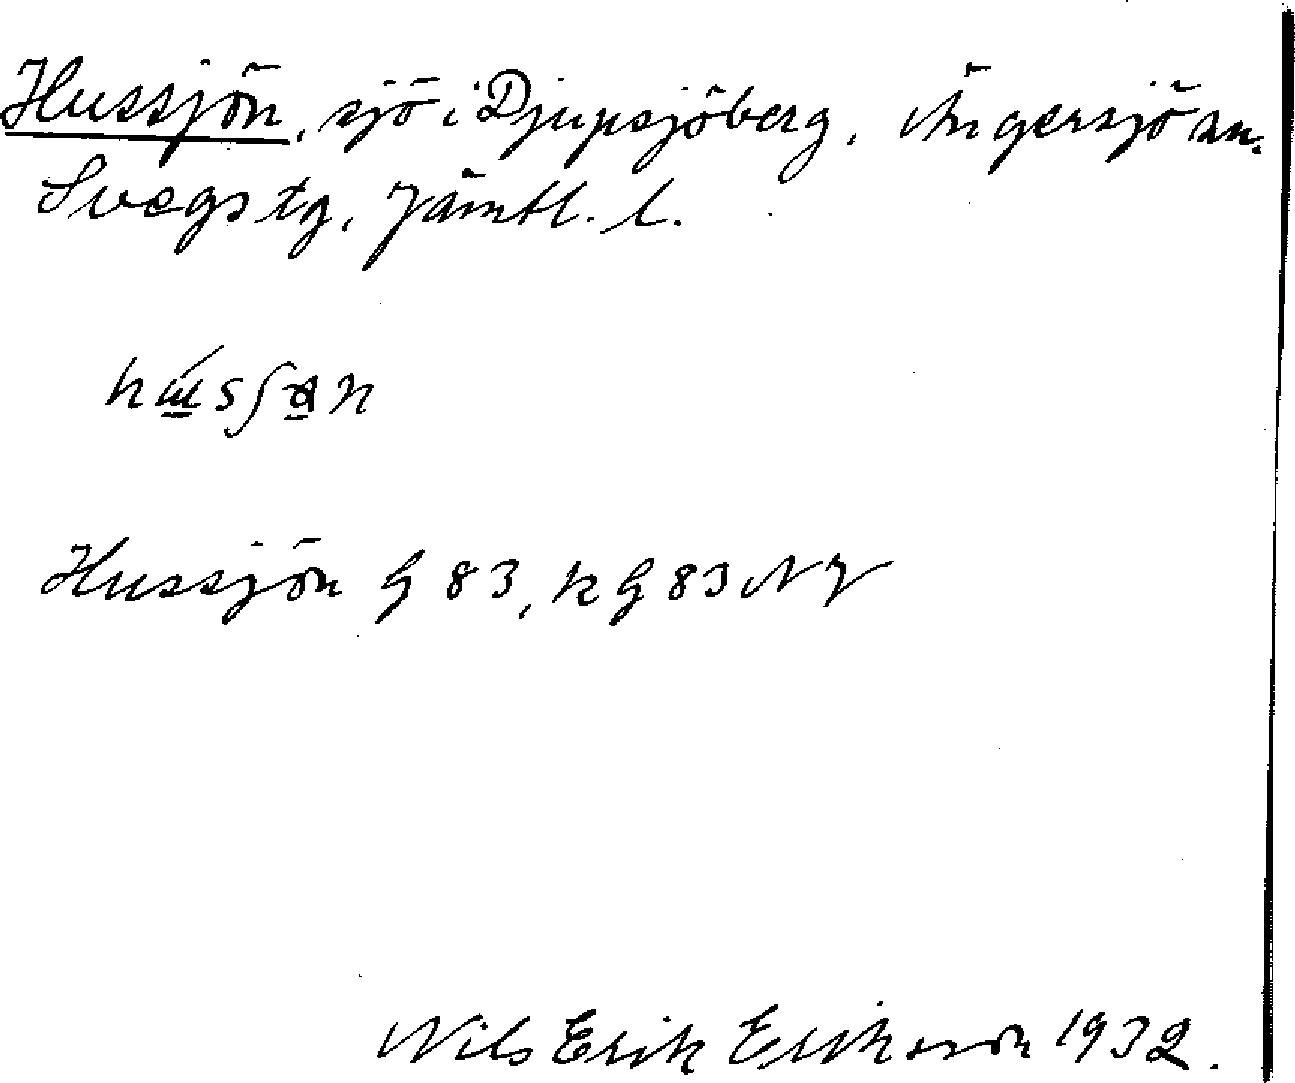 Hussjön, sjö i Djupsjöberg, Ängersjö an.
Svegs tg, Jämtl. l.
Hussjön G 83, k G 83 NV
Nils Erik Eriksson 1932.